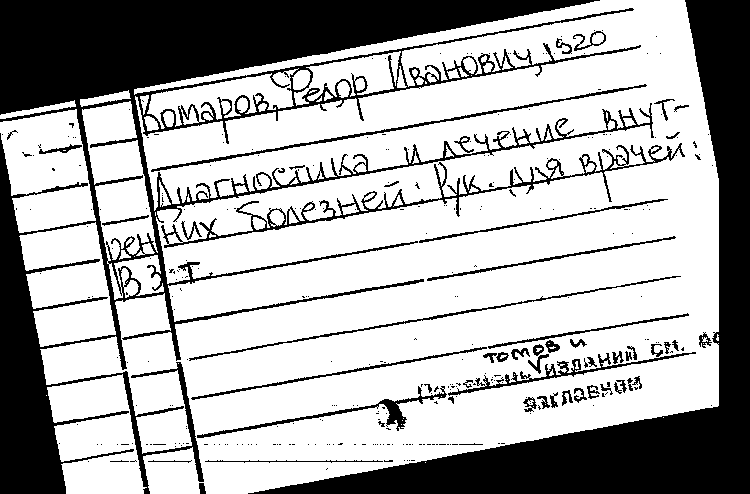 Комаров, Федор Иванович, 1920
Диагностика и лечение внут-
ренних болезней: Рук. для врачей:
В 3-т.
томов и
Перечень изданий см. по
заглавном